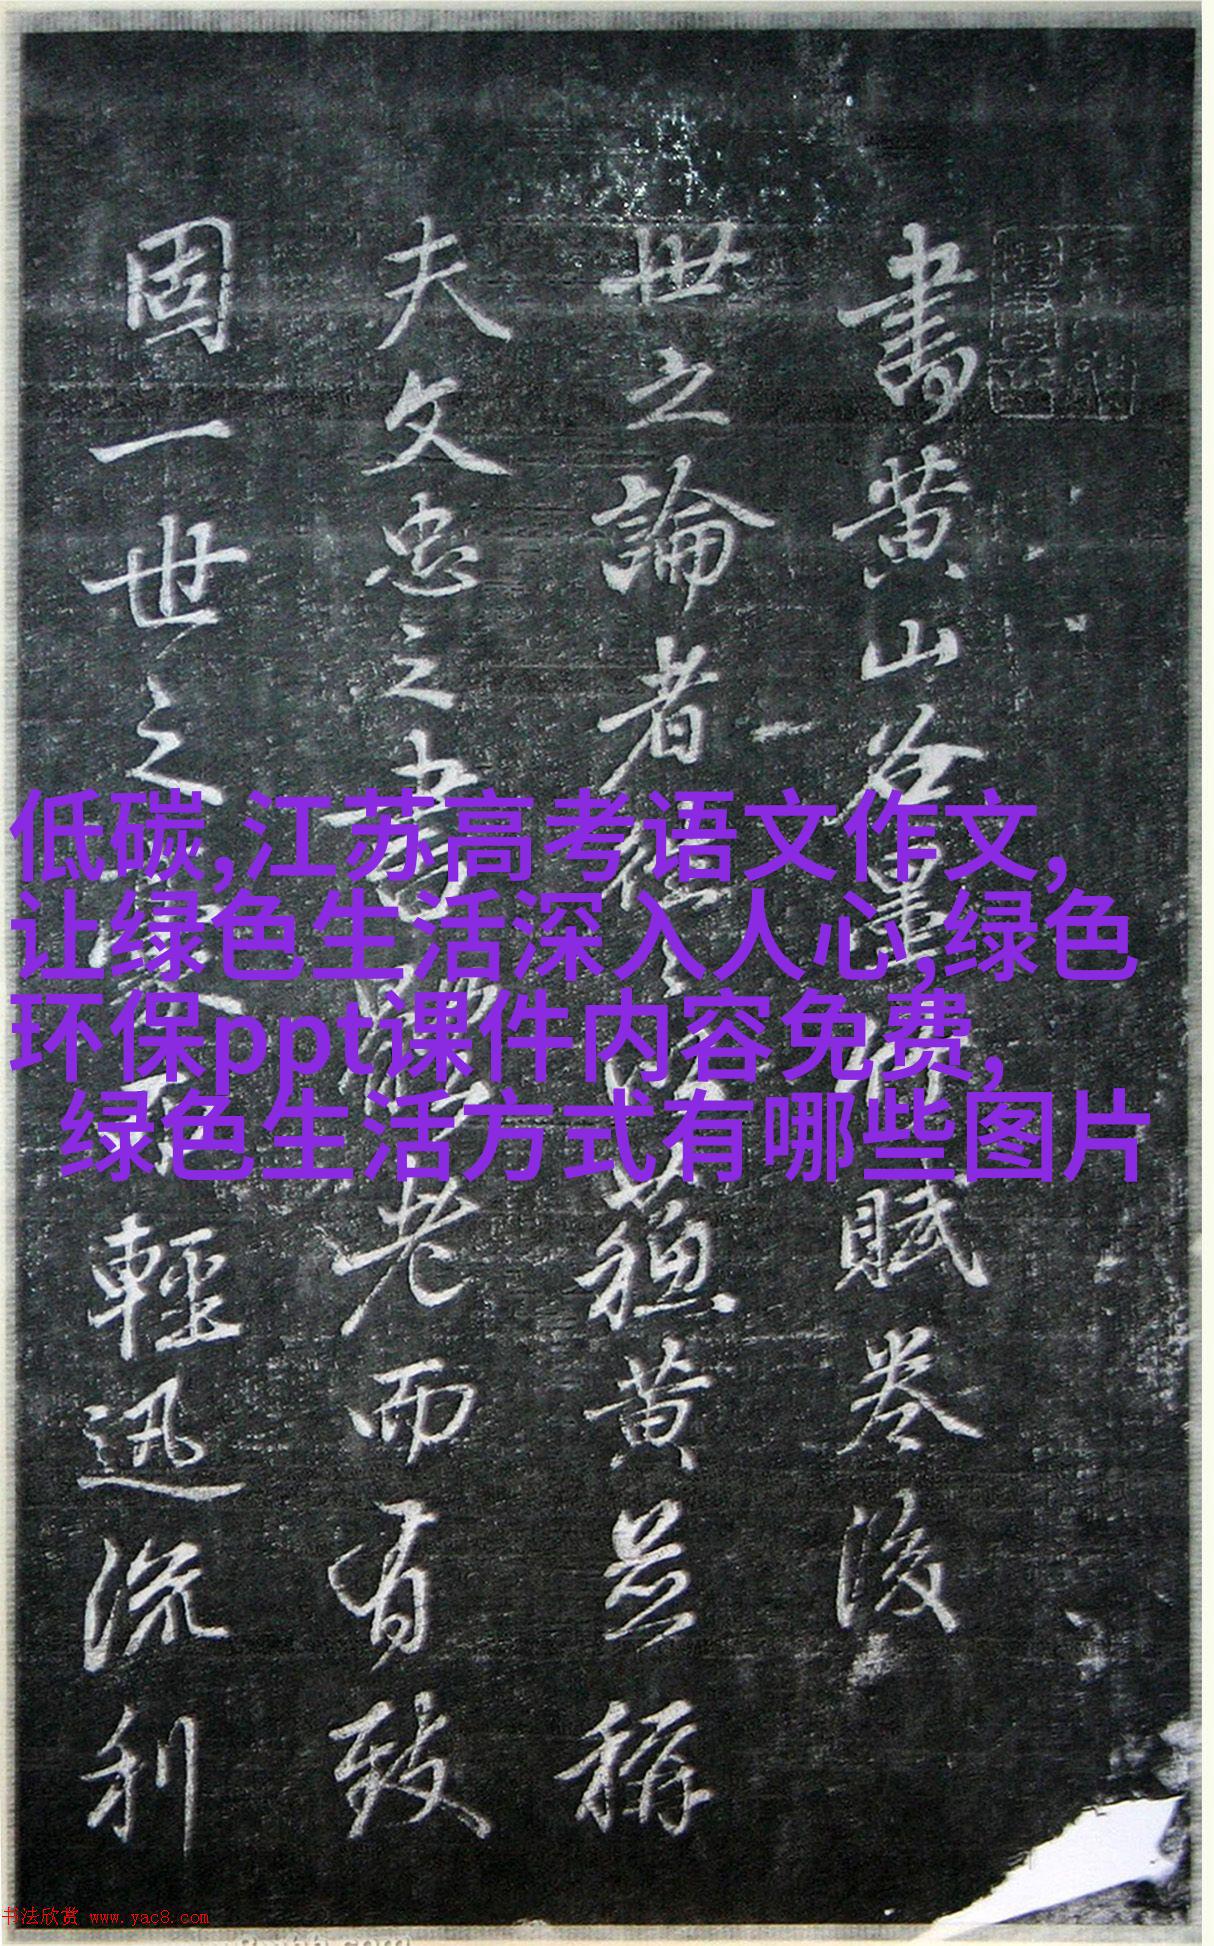 書黄山谷墨竹賦卷後
世之論者往以蘓黄並稱
夫文忠之書老而有致
固一世之輕迅流利
低碳,江苏高考语文作文,
让绿色生活深入人心,绿色
环保ppt课件内容免费,
绿色生活方式有哪些图片
书法欣赏 www.yac8.com